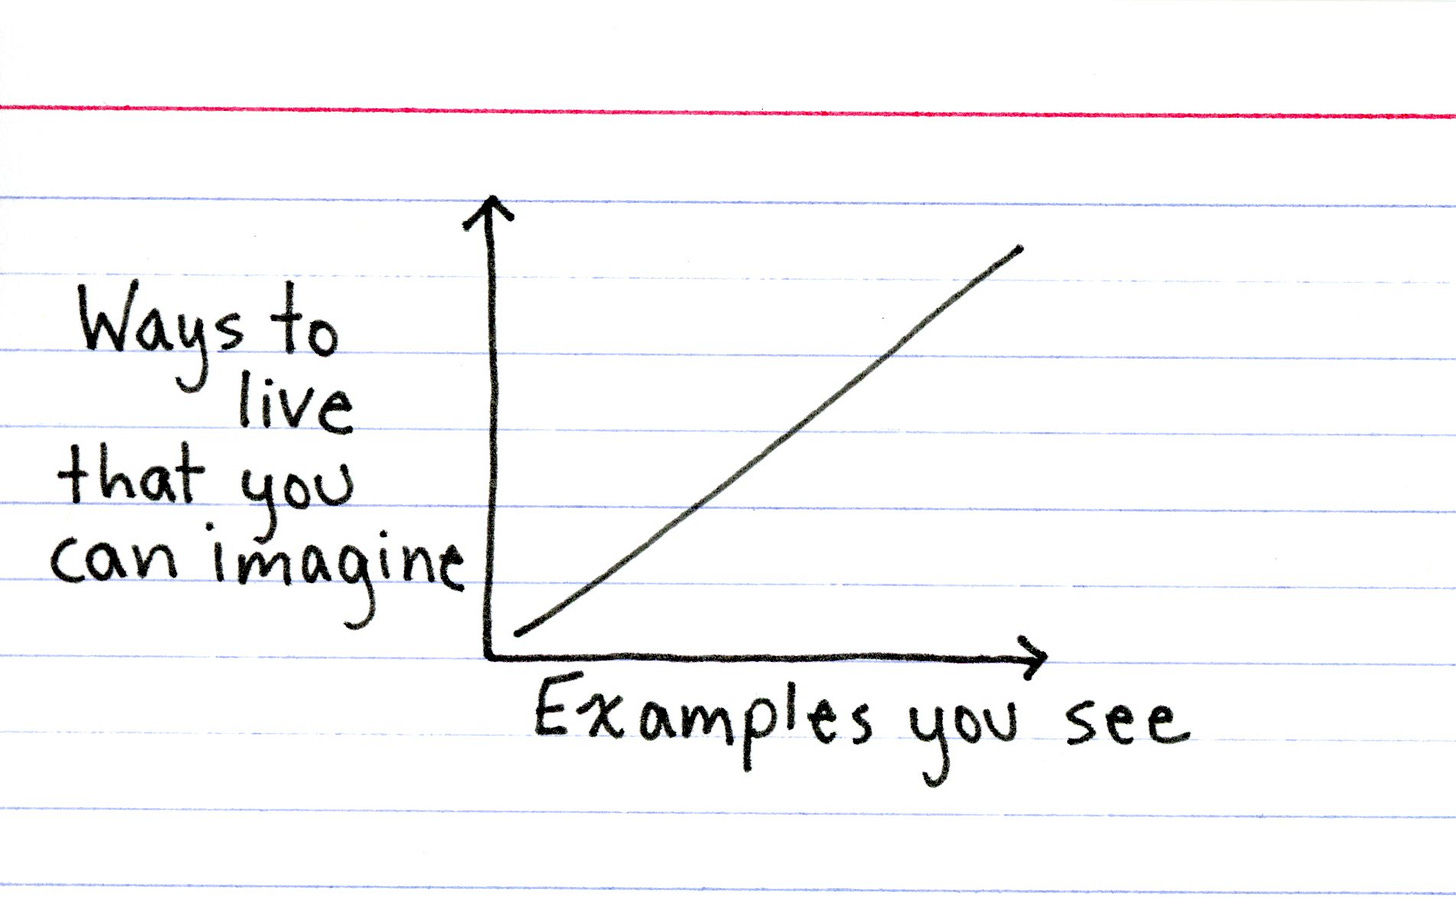 Ways to
live
that you
can imagine
Examples you see